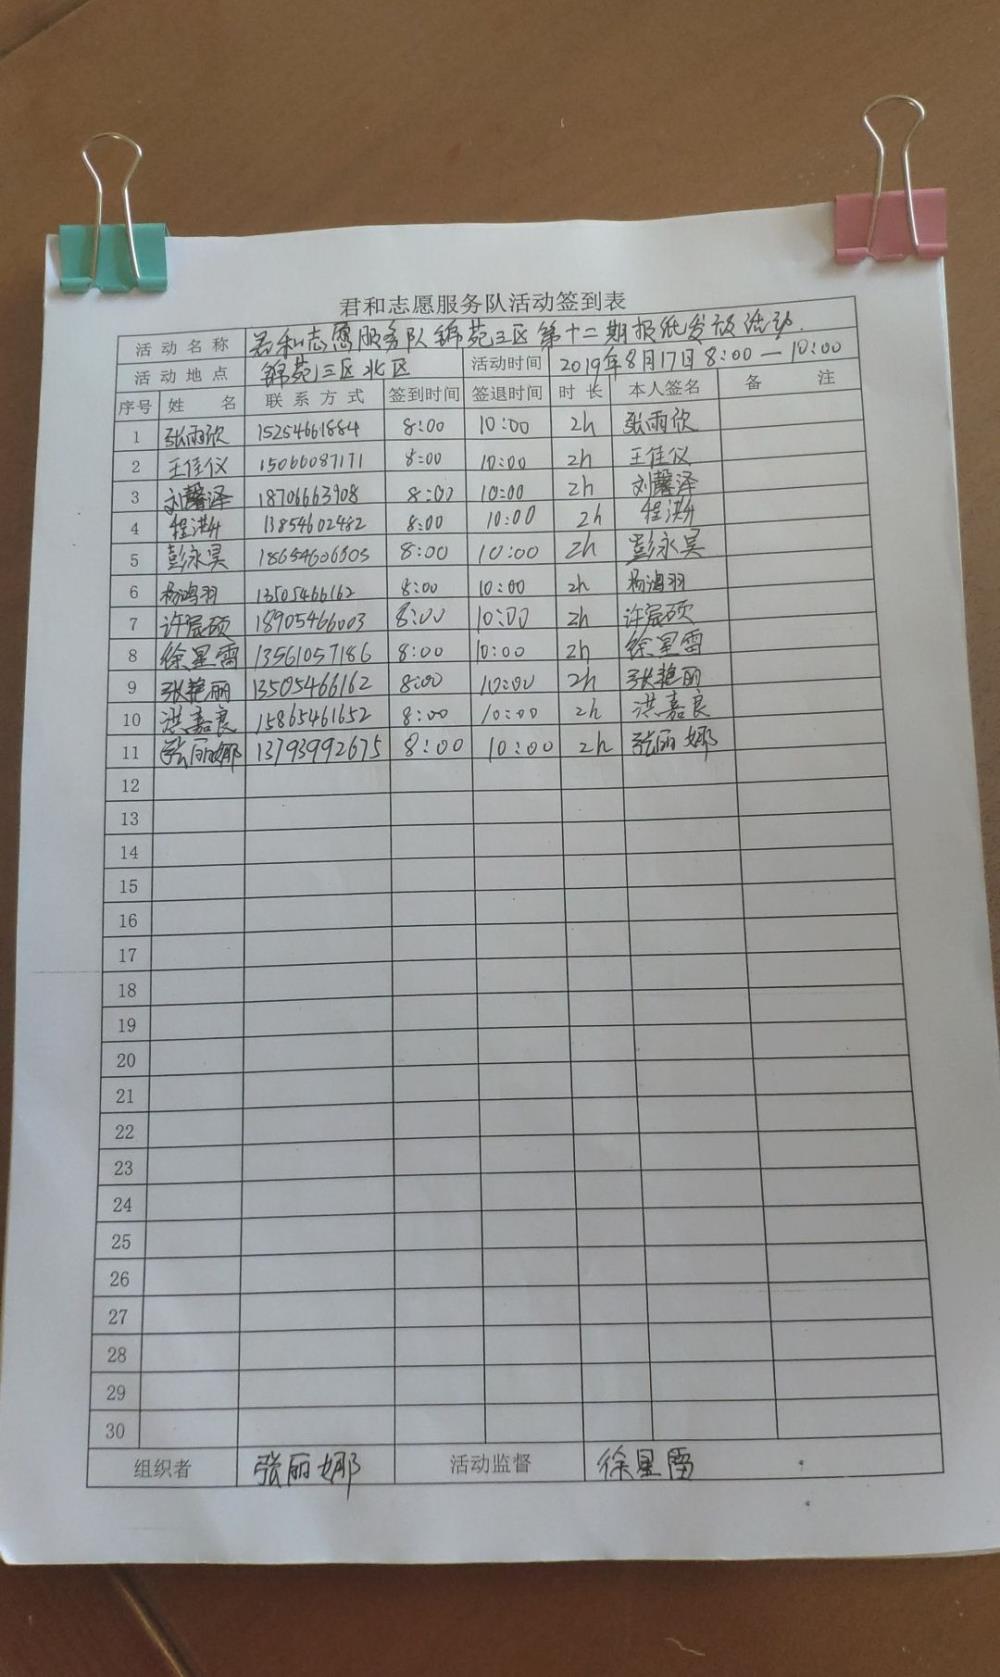 君和志愿服务队活动签到表
活动名称 君和志愿服务队锦苑三区第十二期报纸发放活动.
活动地点 锦苑三区北区 活动时间 2019年8月17日 8:00—10:00
序号 姓名 联系方式 签到时间 签退时间 时长 本人签名 备注
1 张雨欣 15254661884 8:00 10:00 2h 张雨欣
2 王佳仪 15066087171 8:00 10:00 2h 王佳仪
3 刘馨泽 18706663908 8:00 10:00 2h 刘馨泽
4 程洪升 13854602482 8:00 10:00 2h 程洪升
5 彭永昊 8:00 10:00 2h 彭永昊
6 杨鸿羽 13505466162 8:00 10:00 2h 杨鸿羽
7 许宸硕 18905466003 8:00 10:00 2h 许宸硕
8 徐星雷 13561057186 8:00 10:00 2h 徐星雷
9 张艳丽 13505466162 8:00 10:00 2h 张艳丽
10 洪嘉良 15865461652 8:00 10:00 2h 洪嘉良
11 张丽娜 13793992675 8:00 10:00 2h 张丽娜
12
13
14
15
16
17
18
19
20
21
22
23
24
25
26
27
28
29
30
组织者 张丽娜 活动监督 徐星雷